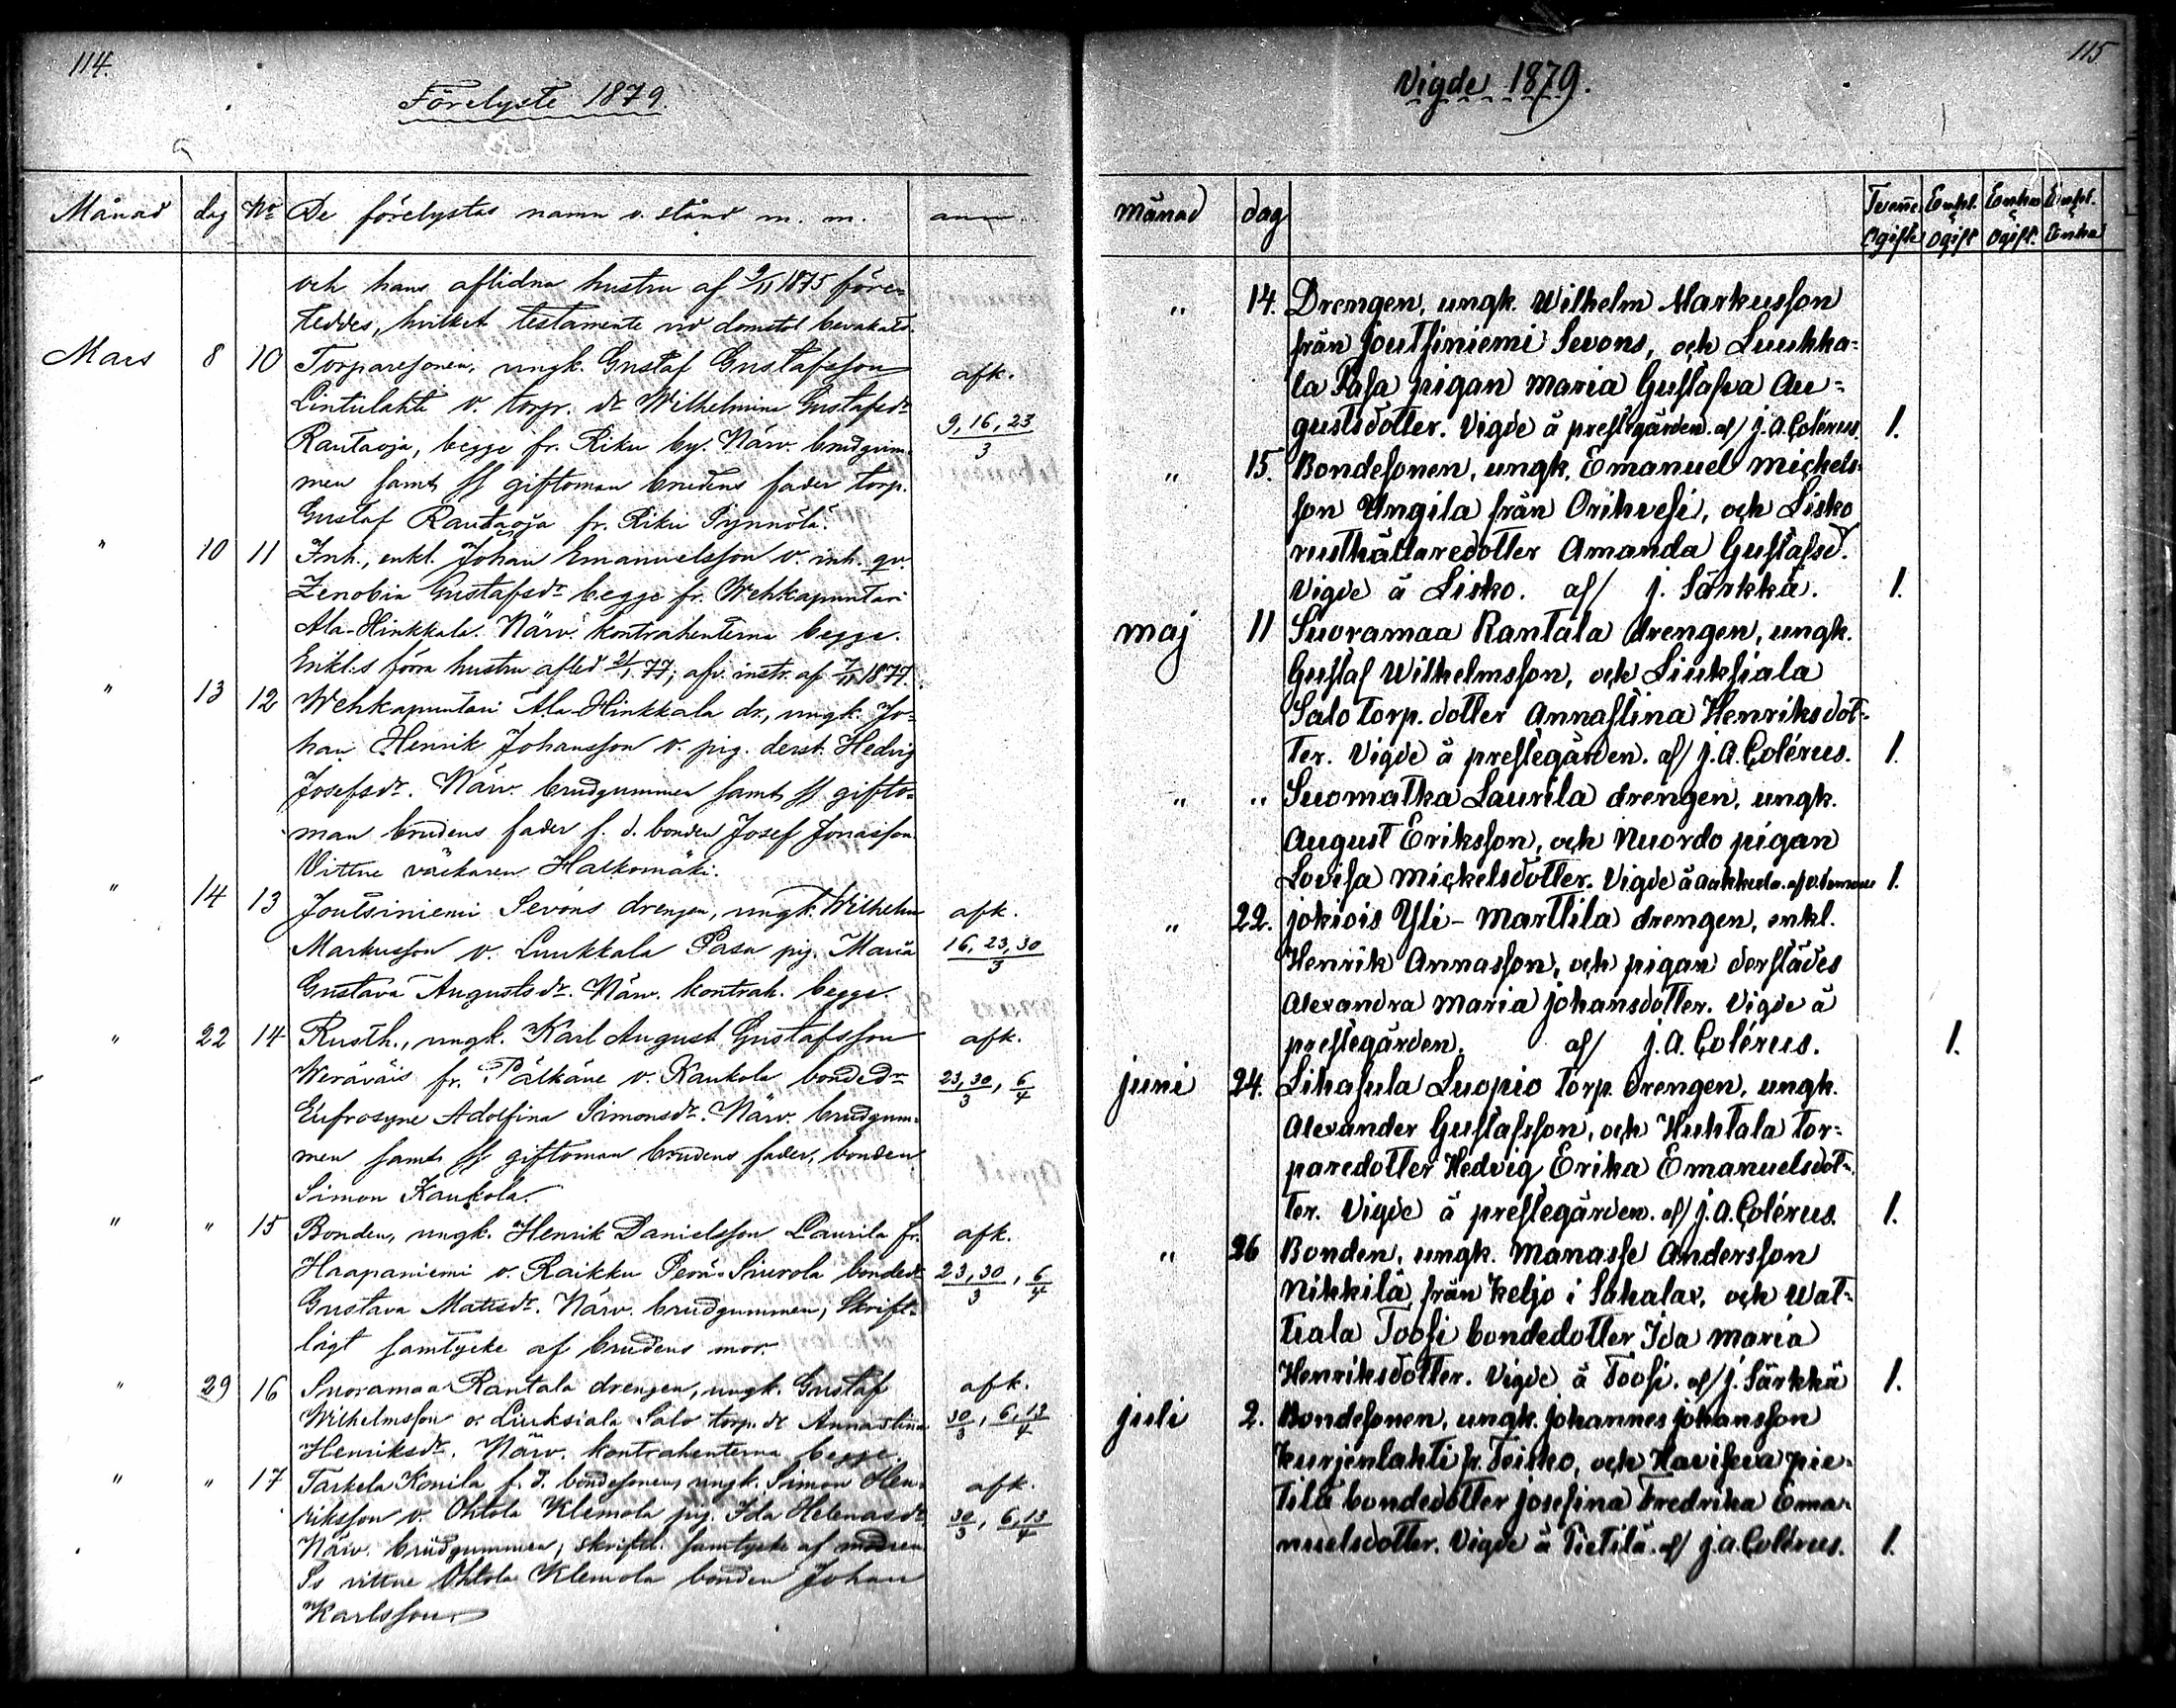 114.
Förelyste 1879.
Månad dag No De förelystas namn o. stånd m. m. anm
och hans aflidna hustru af 9/11 1875 före-
teddes, hvilket testamente vid domstol bevakats.
Mars 8 10 Torparesonen, ungk. Gustaf Gustafsson afk.
Lintulahti o. torpr. dr Wilhelmina Gustafsdr 9, 16, 23/3
Rautaoja, begge fr. Riku by. Närv. brudgum-
men samt ss giftoman brudens fader torp.
Gustaf Rautaoja fr. Riku Pynnölä.
" 10 11 Inh., enkl. Johan Emanuelsson o. inh. qv.
Zenobia Gustafsdr begge fr. Wehkapuntari
Ala-Hinkkala. Närv. kontrahenterna begge.
Enkl:s förra hustru afled 2/1 77; afv. instr. af 7/11 1877.
" 13 12 Wehkapuntari Ala-Hinkkala dr., ungk. Jo-
han Henrik Johansson o. pig. derst. Hedvig
Josefsdr. Närv. brudgummen samt ss gifto-
man brudens fader f. d. bonden Josef Jonasson.
Vittne Halkomäki.
" 14 13 Joutsiniemi Sevons drengen, ungk. Wilhelm afk.
Markusson o. Luukkala Pasa pig. Maria 16, 23, 30/3
Gustava Augustsdr. Närv. kontrah. begge.
" 22 14 Rusth., ungk. Karl August Gustafsson afk.
Weräväis fr. Pälkäne o. Kaukola bondedr 23, 30/3, 6/4
Eufrosyne Adolfina Simonsdr. Närv. brudgum-
men samt ss giftoman brudens fader, bonden
Simon Kaukola.
" " 15 Bonden, ungk. Henrik Danielsson Laurila fr. afk.
Haapaniemi o. Raikku Perä-Siurola bondedr 23, 30/3, 6/4
Gustava Matsdr. Närv. brudgummen, skrift-
ligt samtycke af brudens mor.
" 29 16 Suoramaa Rantala drengen, ungk. Gustaf afk.
Wilhelmsson o. Liuksiala Salo torp. dr Annastina 30/3, 6, 13/4
Henriksdr. Närv. kontrahenterna begge.
" " 17 Tarkela Konila f. d. bondesonen, ungk. Simon Hen- afk.
riksson o. Ohtola Klemola pig. Ida Helenasdr 30/3, 6, 13/4
Närv. brudgummen, skriftl. samtycke af modren
Ss vittne Ohtola Klemola bonden Johan
Karlsson.
115
Vigde 1879.
månad dag Tvenne Ogifte Enkl. Ogift Enka Ogift. Enkl. Enka
" 14. Drengen, ungk. Wilhelm Markusson
från Joutsiniemi Sevons, och Luukka-
la Pasa pigan Maria Gustafva Au-
gustsdotter. Vigde å prestgården. af/ J. A. Colérus. 1.
" 15. Bondesonen, ungk. Emanuel Mickels-
son Ungila från Orihvesi, och Lisko
rusthållaredotter Amanda Gustafsd.
Vigde å Lisko. af/ J. Särkkä. 1.
maj 11 Suoramaa Rantala drengen, ungk.
Gustaf Wilhelmsson, och Liuksiala
Salo torp. dotter Annastina Henriksdot-
ter. Vigde å prestegården. af/ J. A. Colérus. 1.
" " Suomatka Laurila drengen, ungk.
August Eriksson, och Nuordo pigan
Lovisa Mickelsdotter. Vigde å 1.
" 22. Jokiois Yli-Marttila drengen, enkl.
Henrik Annasson, och pigan derstädes
Alexandra Maria Johansdotter. Vigde å
prestegården. af/ J. A. Colérus. 1.
juni 24. Lihasula Luopio torp. drengen, ungk.
Alexander Gustafsson, och Huhtala tor-
paredotter Hedvig Erika Emanuelsdot-
ter. Vigde å prestegården. af/ J. A. Colérus. 1.
" 26 Bonden, ungk. Manasse Andersson
Nikkilä från Keljo i Sahalax, och Wat-
tiala Toosi bondedotter Ida Maria
Henriksdotter. Vigde å Toosi. af/ J. Särkkä 1.
juli 2. Bondesonen, ungk. Johannes Johansson
Kurjenlahti fr. Teisko, och Havisevа Pie-
tilä bondedotter Josefina Fredrika Ema-
nuelsdotter. Vigde å Pietilä. af/ J. A. Colérus. 1.